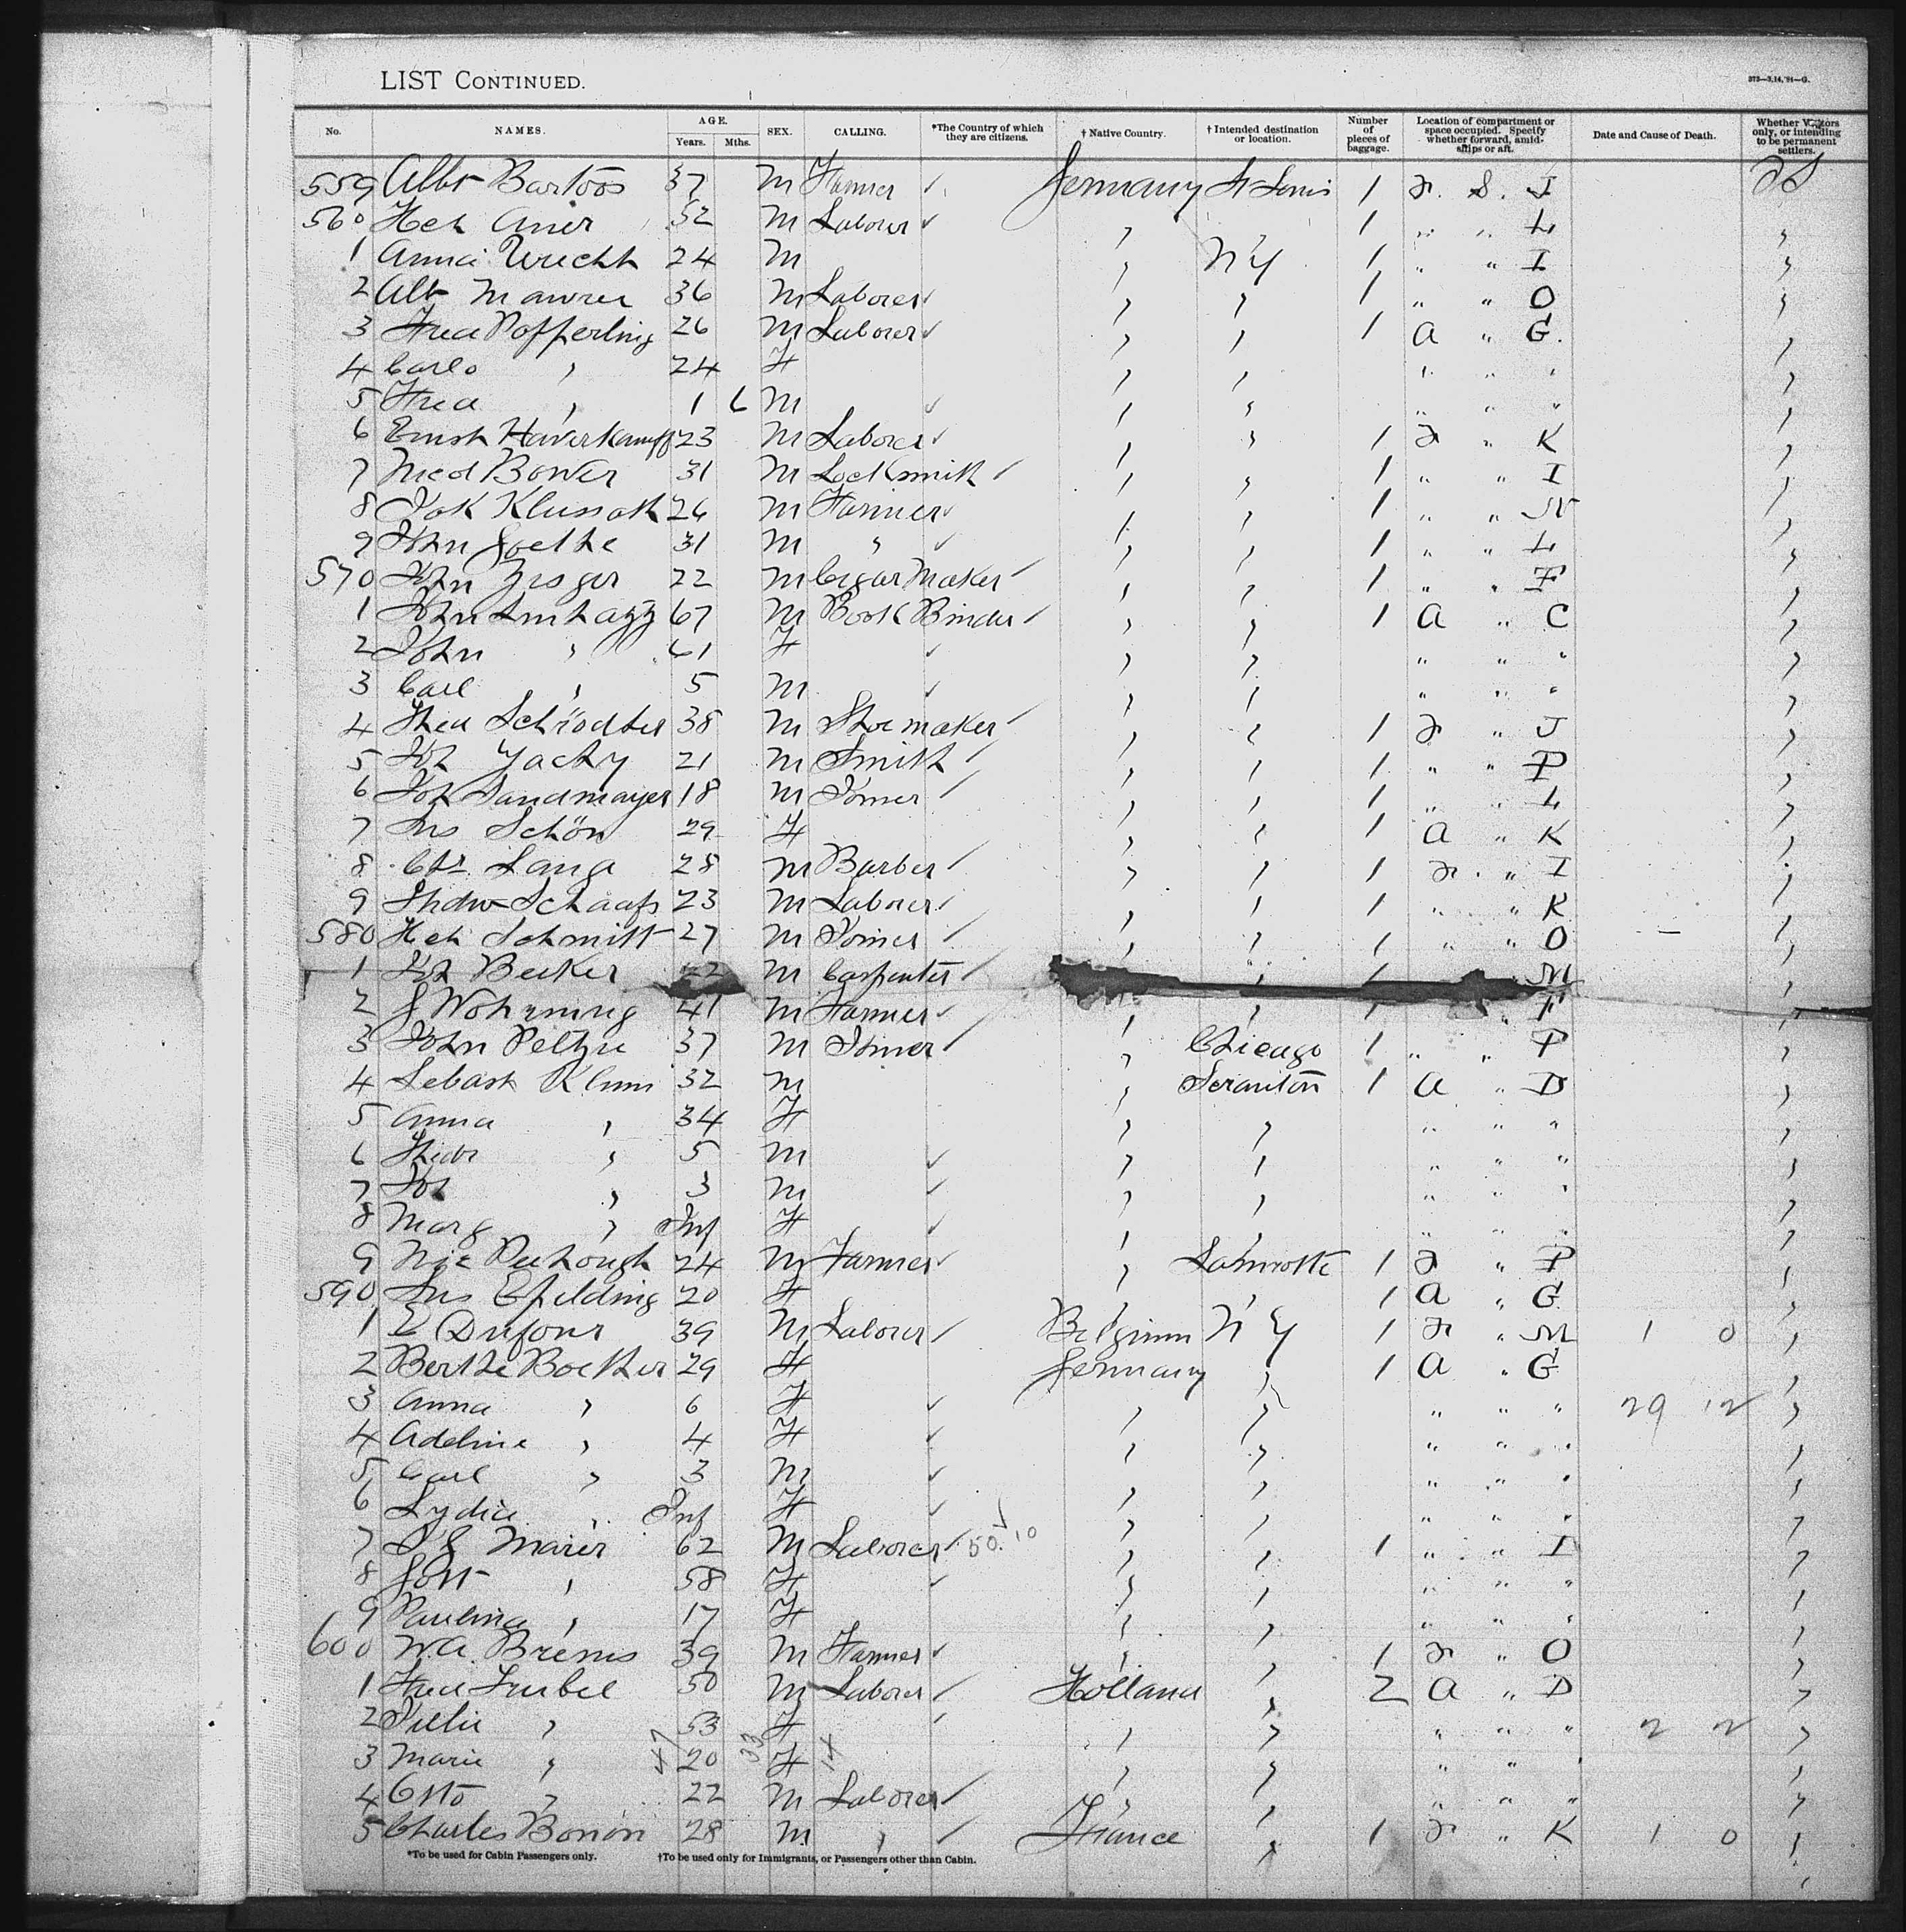 LIST CONTINUED.
373—3,14,'91—G.
No. NAMES. AGE. Years. Mths. SEX. CALLING. *The Country of which they are citizens. † Native Country. † Intended destination or location. Number of pieces of baggage. Location of compartment or space occupied. Specify whether forward, amidships or aft. Date and Cause of Death. Whether Visitors only, or intending to be permanent settlers.
559 Albt Bartoos 37 M Farmer ✓ Germany St Louis 1 F. S. I
560 Hch Auer 52 M Laborer ✓ " 1 " " L "
1 Anna Wrecht 24 M " N Y 1 " " I "
2 Alb Maurer 36 M Laborer ✓ " " 1 " " O "
3 Fred Popperling 26 M Laborer ✓ " " 1 A " G. "
4 Carlo " 24 F " " " " " "
5 Fred " 1 6 M ✓ " " " " " "
6 Ernst Haverkampf 23 M Laborer ✓ " " 1 F " K "
7 Bower 31 M Locksmith ✓ " " 1 " " I "
8 Jak Klussak 26 M Farmer ✓ " " 1 " " N "
9 John Goethe 31 M " ✓ " " 1 " " L "
570 John 22 M Cigar Maker ✓ " " 1 " " F "
1 John 67 M Book Binder ✓ " " 1 A " C "
2 John " 61 F ✓ " " " " " "
3 Carl " 5 M ✓ " " " " " "
4 Schrödter 38 M Shoemaker ✓ " " 1 F " J "
5 Joh Yacky 21 M Smith ✓ " " 1 " " P "
6 Joh Sandmayer 18 M Joiner ✓ " " 1 " " L "
7 Schön 29 F " " 1 A " K "
8 Chr. Lang 28 M Barber ✓ " " 1 F. " I "
9 Schaafs 23 M Laborer ✓ " " 1 " " K "
580 Hch Schmitt 27 M Joiner ✓ " " 1 " " O "
1 Joh Becker M Carpenter ✓ " 1 M "
2 G 41 M Farmer ✓ " " 1 " F "
3 John Peltzre 37 M Joiner ✓ " Chicago 1 " " P "
4 Sebast Klum 32 M " Scranton 1 A " D "
5 Anna " 34 F " " " " " "
6 " 5 M ✓ " " " " " "
7 Jos " 3 M ✓ " " " " " "
8 Marg " Inf F ✓ " " " " " "
9 Nic 24 M Farmer ✓ " 1 F " P "
590 20 F " " 1 A " G "
1 E Dufour 39 M Laborer ✓ Belgium N Y 1 F " M 1 0 "
2 Berthe Boether 29 F Germany " 1 A " G "
3 Anna " 6 F ✓ " " " " " 29 12 "
4 Adeline " 4 F ✓ " " " " " "
5 Carl " 3 M ✓ " " " " " "
6 Lydia " Inf F ✓ " " " " " "
7 Maier 62 M Laborer ✓ 50. 10 " " 1 " " I "
8 Gott " 58 F ✓ " " " " " "
9 Paulina " 17 F " " " " " "
600 W.A. Brems 39 M Farmer ✓ " " 1 F " O "
1 Fred 50 M Laborer ✓ Holland " 2 A " D "
2 " 53 F ✓ " " " " " 2 2 "
3 Marie " 47 20 33 F 14 " " " " " "
4 Otto " 22 M Laborer ✓ " " " " " "
5 Charles Bonon 28 M " ✓ France " 1 F " K 1 0 "
*To be used for Cabin Passengers only. †To be used only for Immigrants, or Passengers other than Cabin.